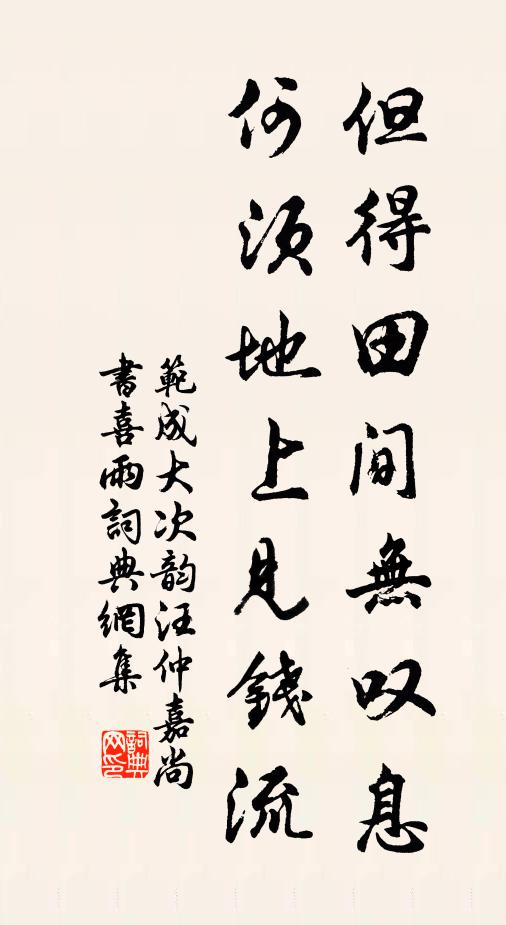 但得田间無叹息
何须地上見錢流
範成大次韵汪仲嘉尚
書喜雨詞典網集
詞典
网印